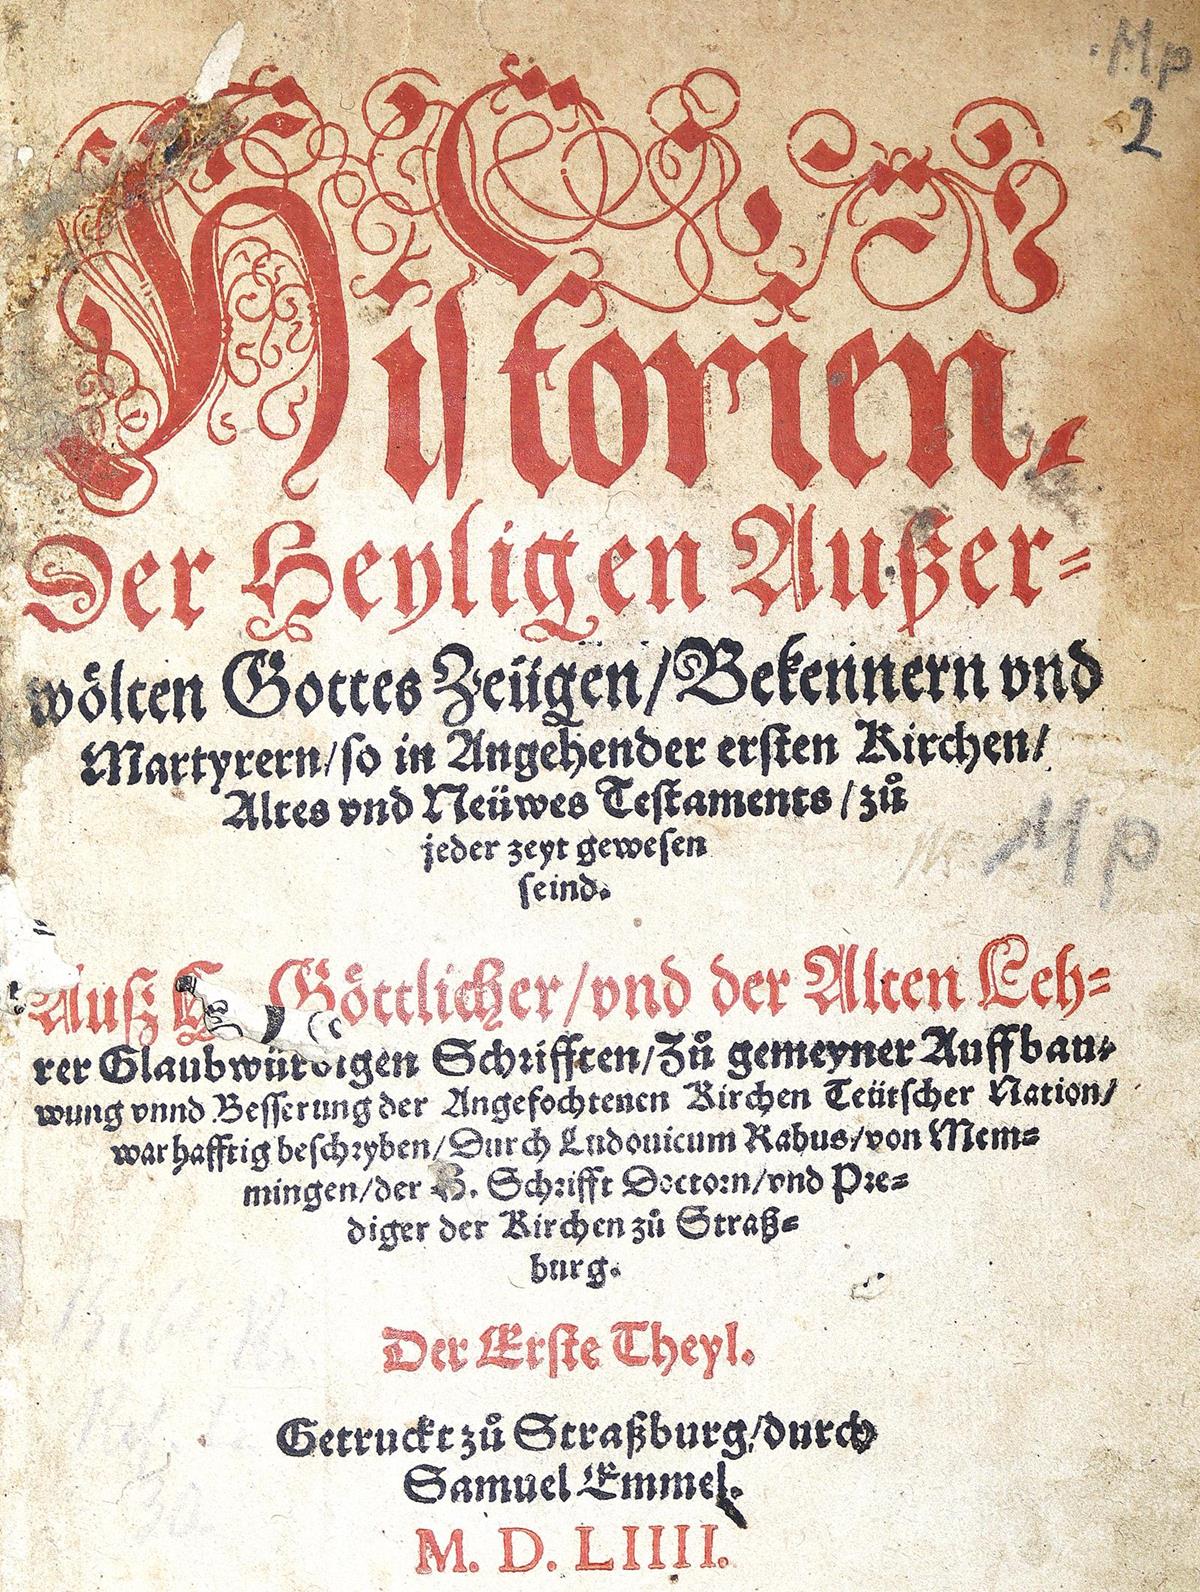 Mp
2
Historien.
Der Heyligen Außer⸗
wölten Gottes Zeügen/Bekennern vnd
Martyrern/so in Angehender ersten Kirchen/
Altes vnd Neüwes Testaments/zů
jeder zeyt gewesen
seind.
Mp
Auß H. Göttlicher/vnd der Alten Leh⸗
rer Glaubwürdigen Schrifften/Zů gemeyner Auffbau⸗
wung vnnd Besserung der Angefochtenen Kirchen Teütscher Nation/
warhafftig beschryben/Durch Ludouicum Rabus/von Mem⸗
mingen/der H. Schrifft Doctorn/vnd Pre⸗
diger der Kirchen zů Straß⸗
burg.
Der Erste Theyl.
Getruckt zů Straßburg/durch
Samuel Emmel.
M. D. LIIII.